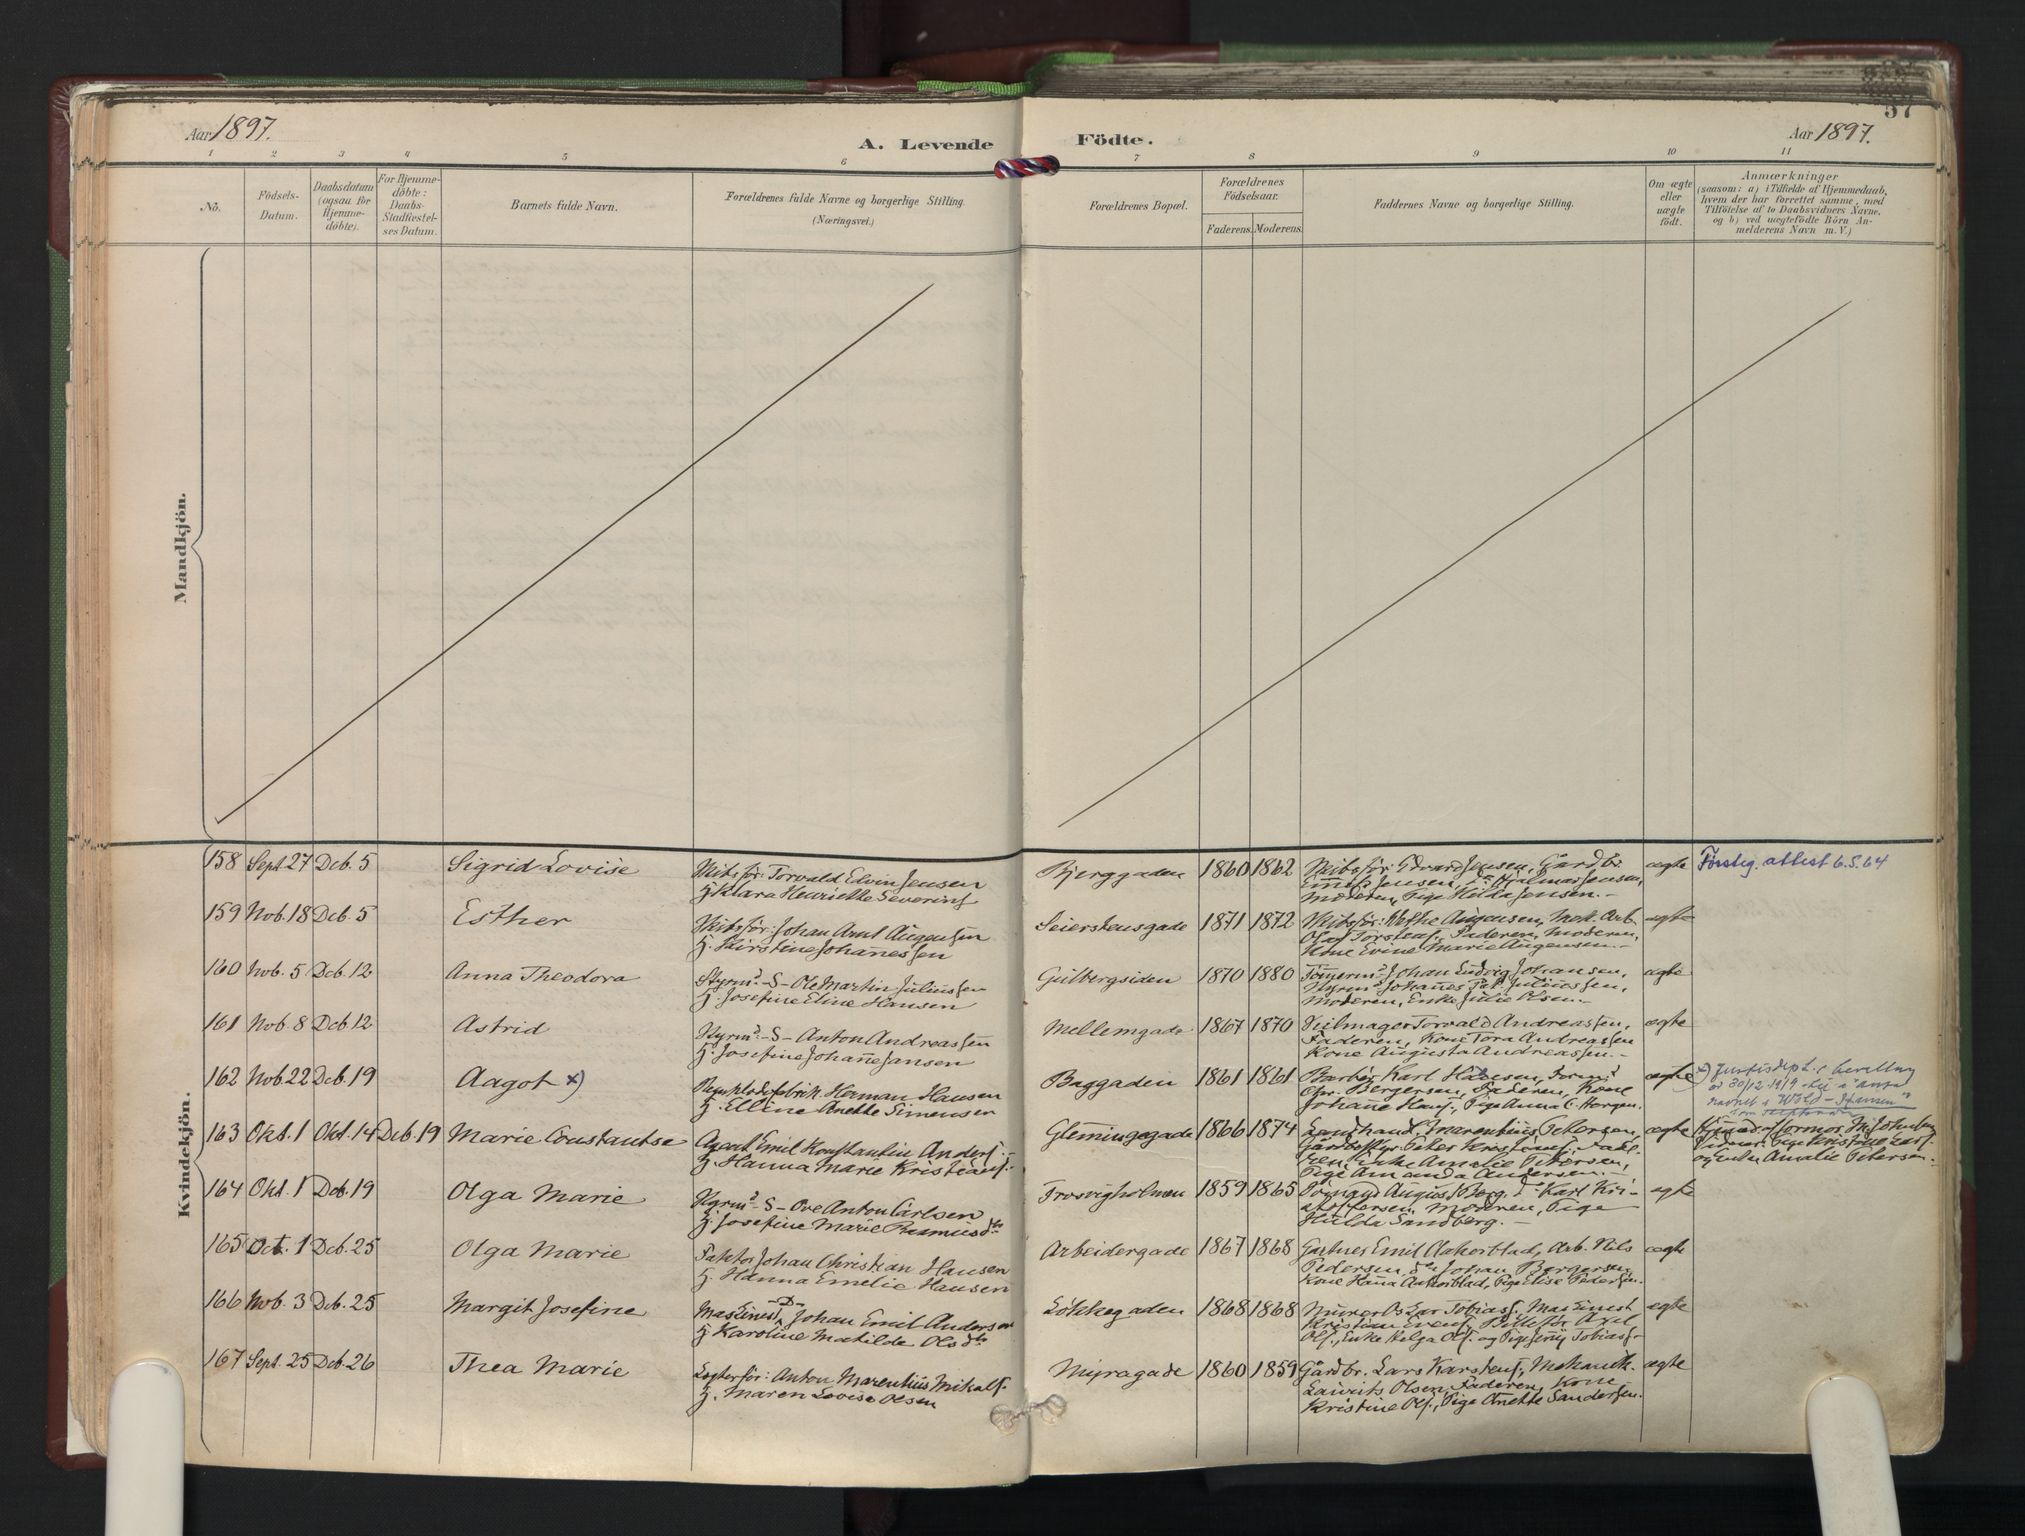 57
Aar 1897.
A. Levende Födte.
Aar 1897.
1 2 3 4 5 6 7 8 9 10 11
No.
Födsels-
Datum.
Daabsdatum
(ogsaa for
Hjemme-
döbte).
For Hjemme-
döbte:
Daabs-
Stadfæstel-
ses Datum.
Barnets fulde Navn.
Forældrenes fulde Navne og borgerlige Stilling.
(Næringsvei.)
Forældrenes Bopæl.
Forældrenes
Födselsaar.
Faderens. Moderens.
Faddernes Navne og borgerlige Stilling.
Om ægte
eller
uægte
födt.
Anmærkninger
(saasom: a) i Tilfælde af Hjemmedaab,
hvem der har forrettet samme, med
Tilföielse af to Daabsvidners Navne,
og b) ved uægtefödte Börn An-
melderens Navn m. V.)
Mandkjön.
Kvindekjön.
158 Sept. 27 Deb. 5 Sigrid Lovise
Skibsför: Torvald Edvin Jensen
Hj. Klara Henriette Severins
Bjerggaden 1860 1862
Skibsför: Edvard Jensen, Gårdbr.
Jensen, Hjalmar Jensen,
Moderen, Pige Hilda Jensen.-
ægte Försteg. attest 6.5.64
159 Nob. 18 Deb. 5 Esther
Skibsför: Johan Arnt Augensen
Hj. Kirstine Johanessen
Seierstensgade 1871 1872
Skibsför: Augensen, Arb.
Olaf Faderen, Moderen,
Kone Evine Marie Augensen.-
ægte
160 Nob. 5 Deb. 12 Anna Theodora
Styrm.-S- Ole Martin Juliussen
Hj. Josefine Eline Hansen
Gulbergsiden 1870 1880
Tömerm. Johan Ludvig Johansen,
Styrm. Johanes Juliussen,
Moderen, Enke Julie Olsen.-
ægte
161 Nob. 8 Deb. 12 Astrid
Styrm.-S- Anton Andreassen
Hj. Josefine Johanne Jansen
Mellemgade 1867 1870
Seilmager Torvald Andreassen,
Faderen, Kone Tora Andreassen
Kone Augusta Andreassen.-
ægte
162 Nob. 22 Deb. 19 Aagot x)
Herman Hansen
Hj. Elline Anette Simensen
Baggaden 1861 1861
Barber Karl Hansen,
Chr. Bergersen, Faderen, Kone
Johanne Hans., Pige Anna C. Horgen.
ægte x) Justisdept.s bevilling
av 30/12 1919 til å anta
navnet "Wold-Hansen"
som
163 Okt. 1 Okt. 14 Deb. 19 Marie Constantse
Agent Emil Konstantin Anders.-
Hj. Hanna Marie Kristians.-
Glemingegade 1866 1874
Petersen,
Peter
Enke Amalie Petersen,
Pige Amanda Andersen.-
ægte
og Enke Amalie Petersen.-
164 Okt. 1 Deb. 19 Olga Marie
Styrm.-S- Ove Anton Carlsen
Hj. Josefine Marie Rasmusdtr
Trosvigholmen 1859 1865
August Berg, Karl Kri-
stoffersen, Moderen, Pige
Hulda Sandberg.-
ægte
165 Oct. 1 Deb. 25 Olga Marie
Faktor Johan Christian Hansen
Hj. Hanna Emelie Hansen
Arbeidergade 1867 1868
Gartner Emil Aakerblad, Arb. Nils
Pedersen, Johan Borgersen,
Kone Hana Aakerblad, Pige Elise Pedersen.
ægte
166 Nob. 3 Deb. 25 Margit Josefine
Maskinist -D- Johan Emil Andersen
Hj. Karoline Matilde Olsdtr
Lökkegaden 1868 1868
Lar Tobiass., Maskinist
Kristian Axel
Ols., Enke Helga Ols. og Pige Jenny Tobiass.-
ægte
167 Sept. 25 Deb. 26 Thea Marie
Logterför: Anton Marentius Mikals.
Hj. Maren Lovise Olsen
Myragade 1860 1859
Gårdbr. Lars Karstens., Mekanik.
Lauvits Olsen, Faderen, Kone
Kristine Ols., Pige Anette Sandersen.
ægte